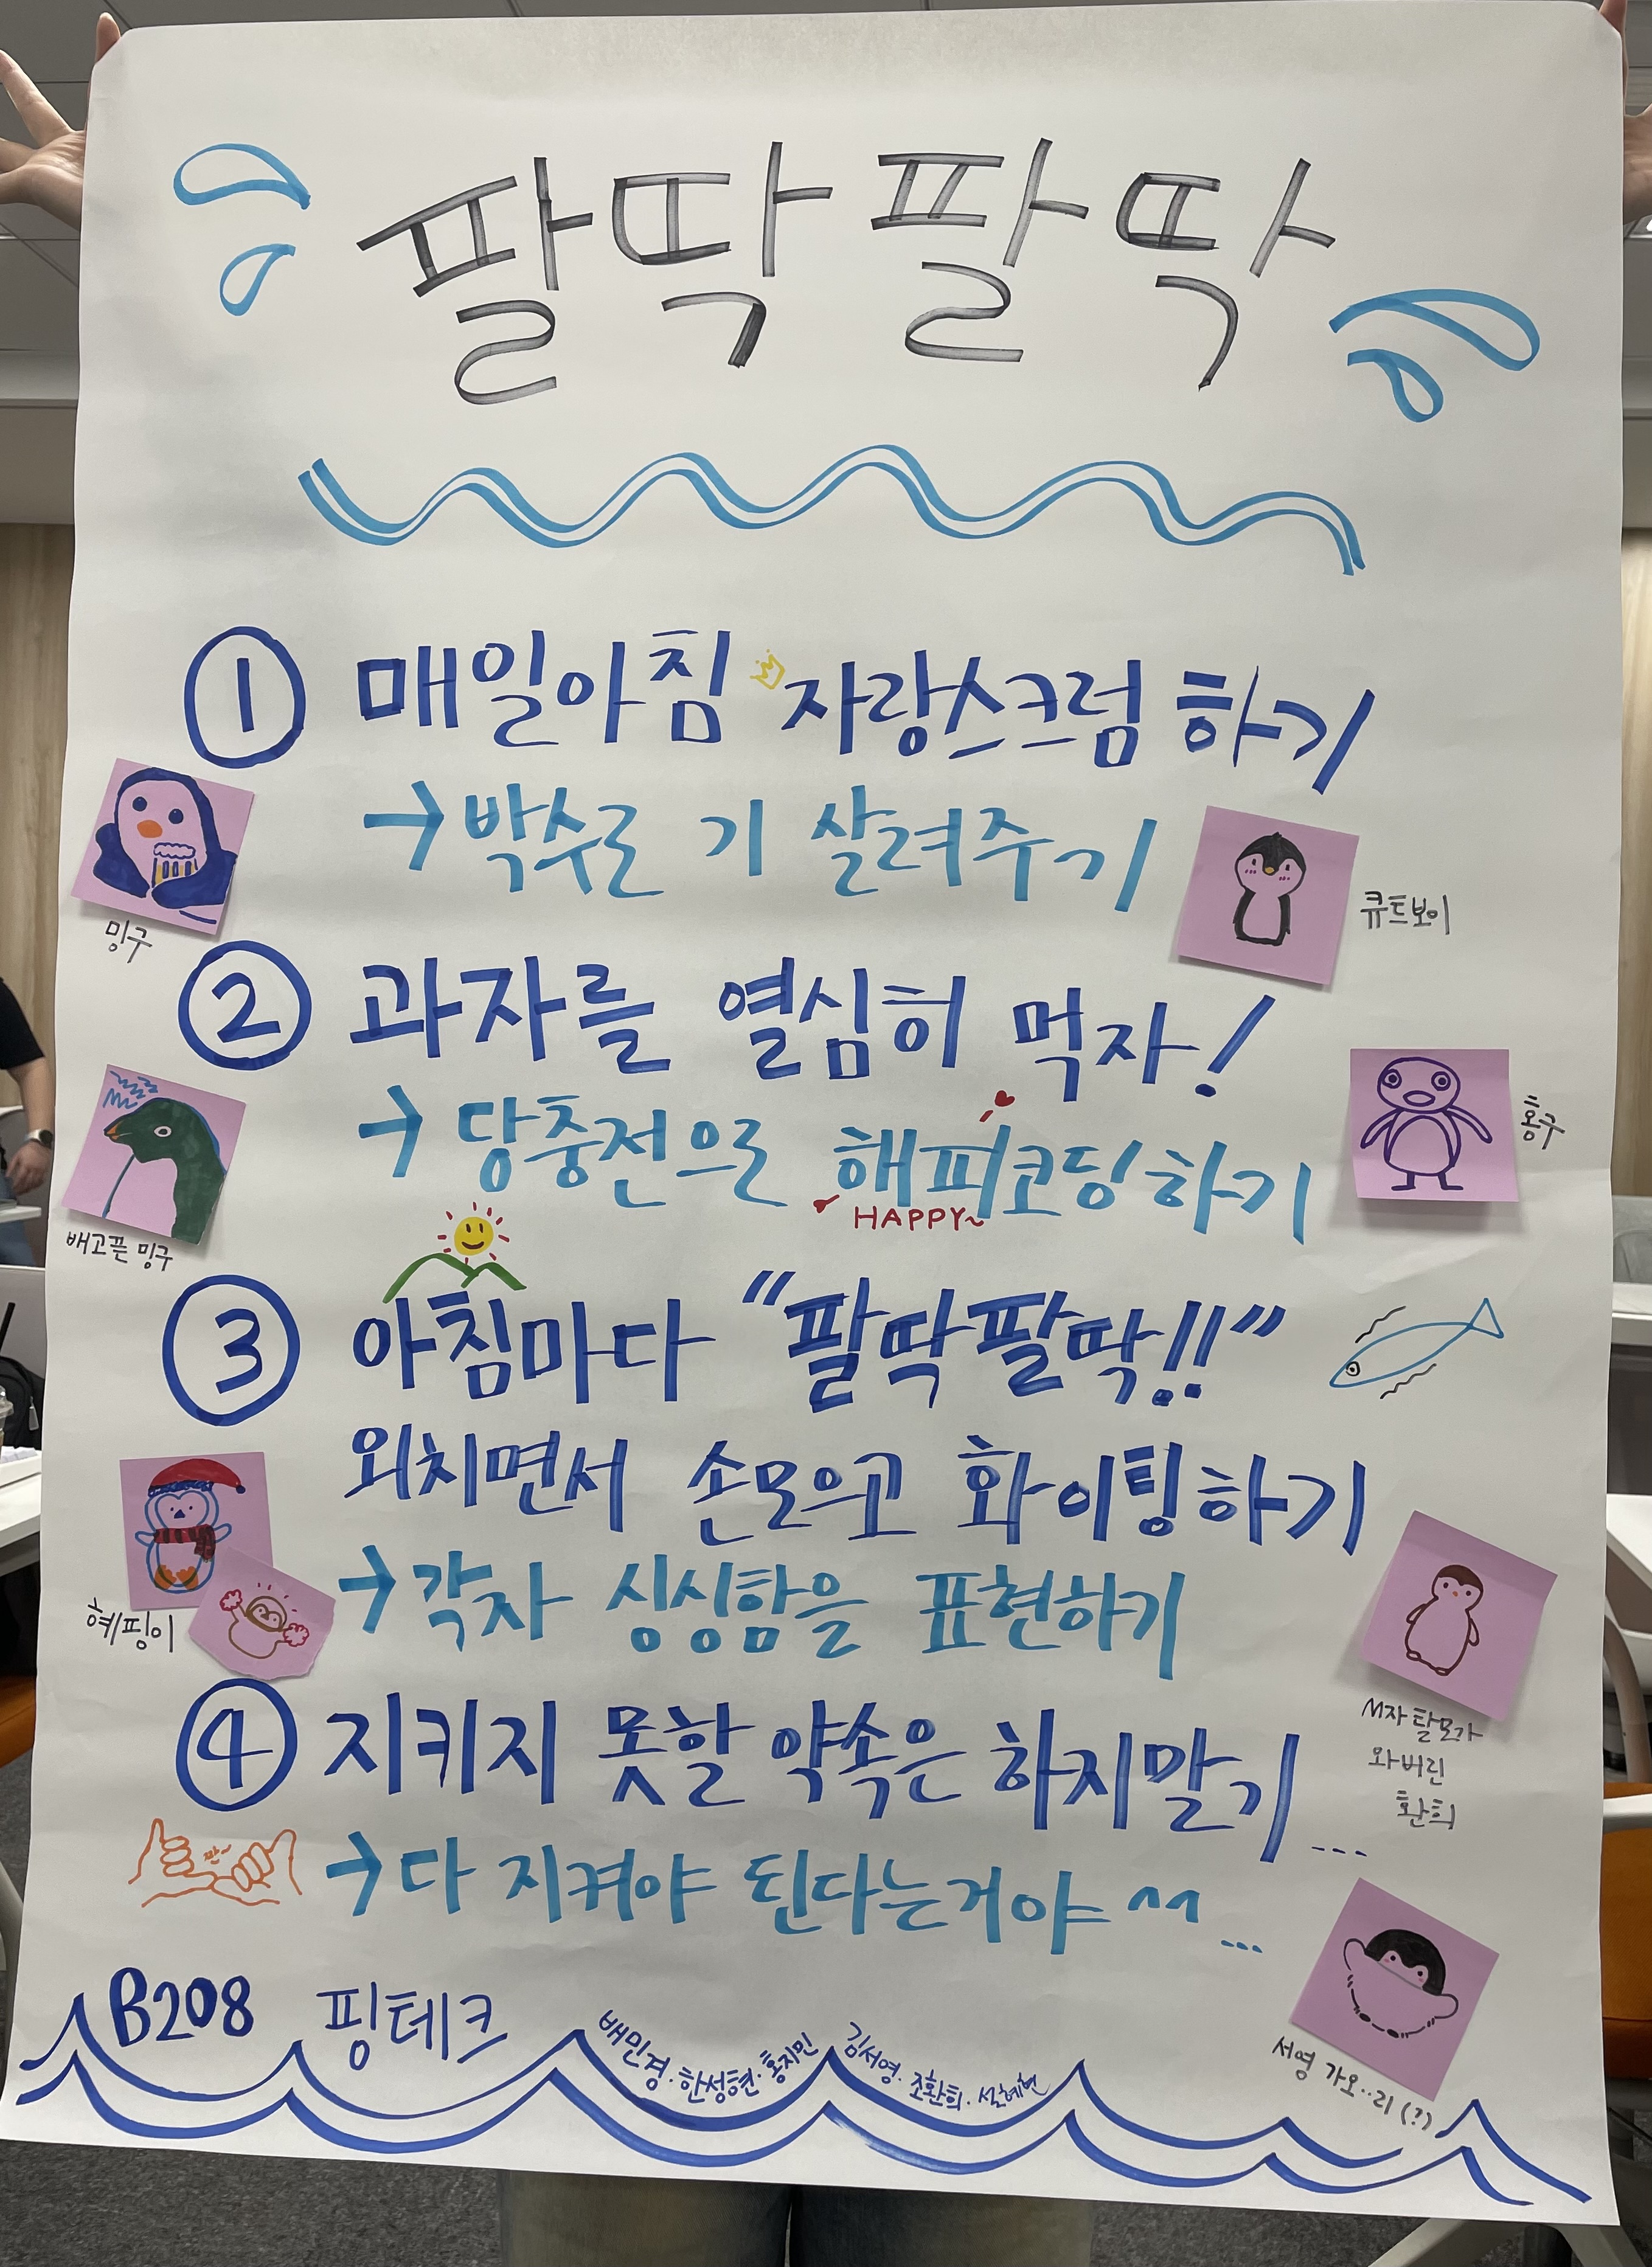 팔딱팔딱
① 매일아침 자랑스크럼 하기
→ 박수로 기 살려주기
밍구
큐트보이
② 과자를 열심히 먹자!
→ 당충전으로 해피코딩하기
HAPPY~
홍구
배고픈 밍구
③ 아침마다 "팔딱팔딱!!"
외치면서 손모으고 화이팅하기
→ 각자 싱싱함을 표현하기
혜핑이
④ 지키지 못할 약속은 하지말기...
M자 탈모가
와버린
환희
→ 다 지켜야 된다는거야^^...
서영 가오..리(?)
B208 핑테크
배민경·한성현·홍지민 김서영·조환희·설혜현